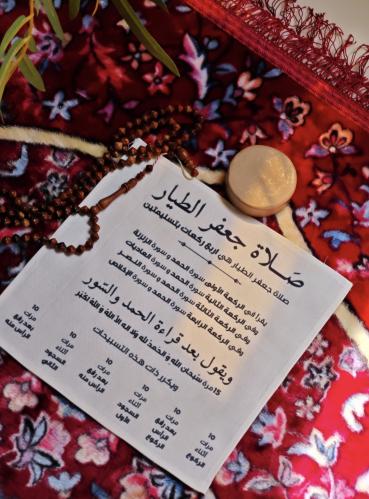 صَلاة جعفر الطيار
صلاة جعفر الطيار هي اربع ركعات بتسليمتين
يقرأ في الركعة الأولى سورة الحمد و سورة الزلزلة
وفي الركعة الثانية سورة الحمد و سورة العاديات
وفي الركعة الثالثة سورة الحمد و سورة النصر
وفي الركعة الرابعة سورة الحمد و سورة الإخلاص
ويقول بعد قراءة الحمد و السُّور
15 مرة سبحان الله و الحمد لله ولا اله الا الله و الله اكبر
ويكرر ذات هذه التسبيحات
10
مرات
أثناء
الركوع
10
مرات
بعد رفع
الرأس من
الركوع
10
مرات
أثناء
السجود
الأول
10
مرات
بعد رفع
الرأس منه
10
مرات
أثناء
السجود
الثاني
10
مرات
بعد رفع
الرأس منه